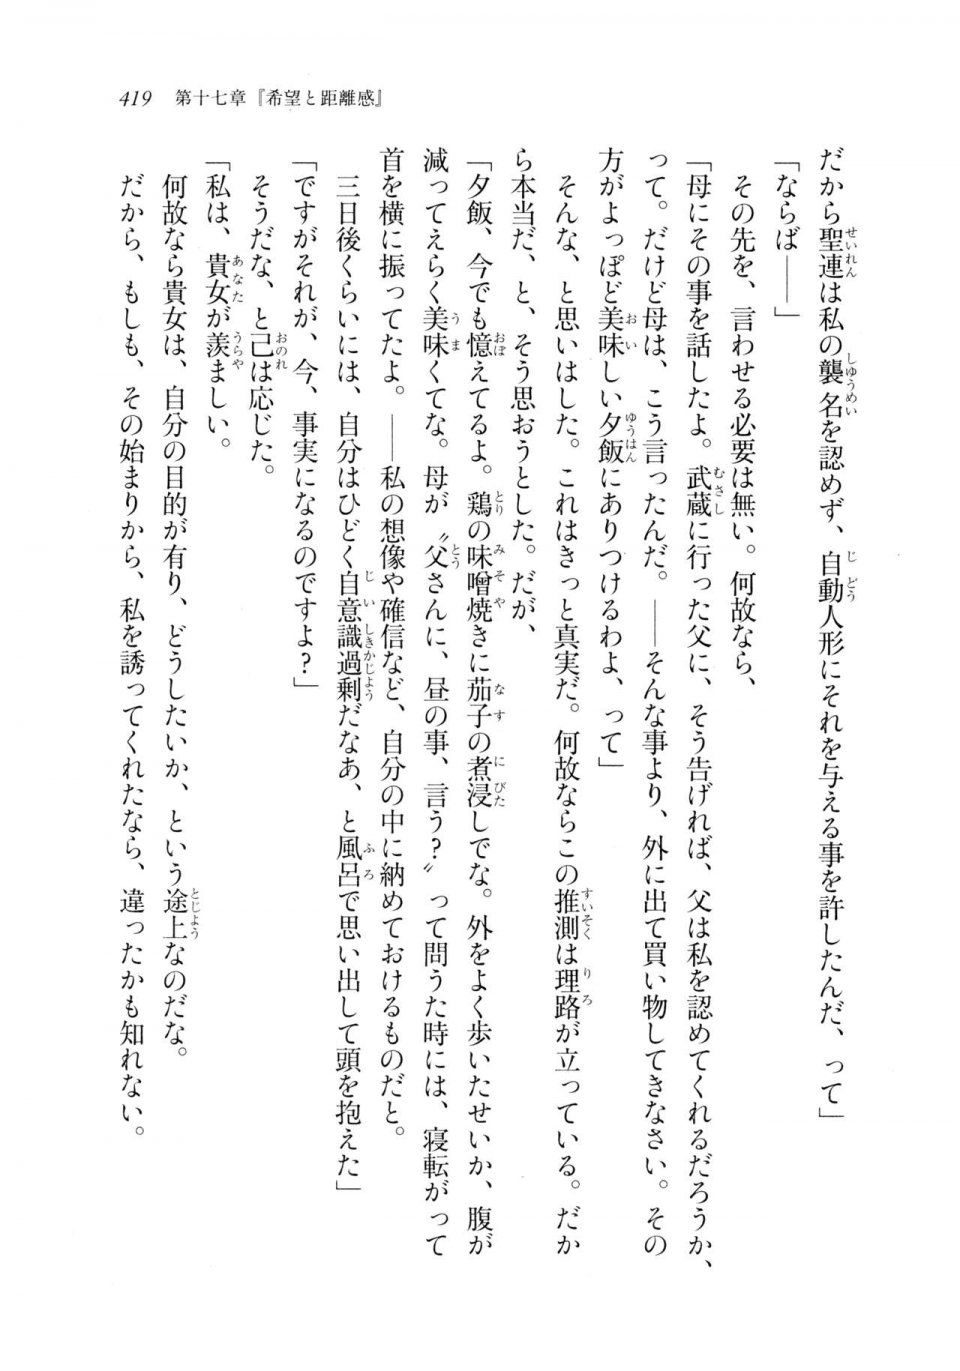 419　第十七章『希望と距離感』
だから聖連は私の襲名を認めず、自動人形にそれを与える事を許したんだ、って」
「ならば――」
その先を、言わせる必要は無い。何故なら、
「母にその事を話したよ。武蔵に行った父に、そう告げれば、父は私を認めてくれるだろうか、
って。だけど母は、こう言ったんだ。――そんな事より、外に出て買い物してきなさい。その
方がよっぽど美味しい夕飯にありつけるわよ、って」
そんな、と思いはした。これはきっと真実だ。何故ならこの推測は理路が立っている。だか
ら本当だ、と、そう思おうとした。だが、
「夕飯、今でも憶えてるよ。鶏の味噌焼きに茄子の煮浸しでな。外をよく歩いたせいか、腹が
減ってえらく美味くてな。母が〝父さんに、昼の事、言う？〟って問うた時には、寝転がって
首を横に振ってたよ。――私の想像や確信など、自分の中に納めておけるものだと。
三日後くらいには、自分はひどく自意識過剰だなあ、と風呂で思い出して頭を抱えた」
「ですがそれが、今、事実になるのですよ？」
そうだな、と己は応じた。
「私は、貴女が羨ましい。
何故なら貴女は、自分の目的が有り、どうしたいか、という途上なのだな。
だから、もしも、その始まりから、私を誘ってくれたなら、違ったかも知れない。